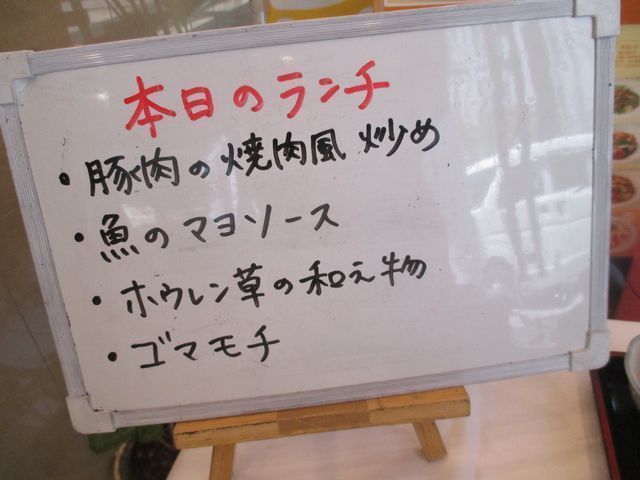 本日のランチ
・豚肉の焼肉風炒め
・魚のマヨソース
・ホウレン草の和え物
・ゴマモチ